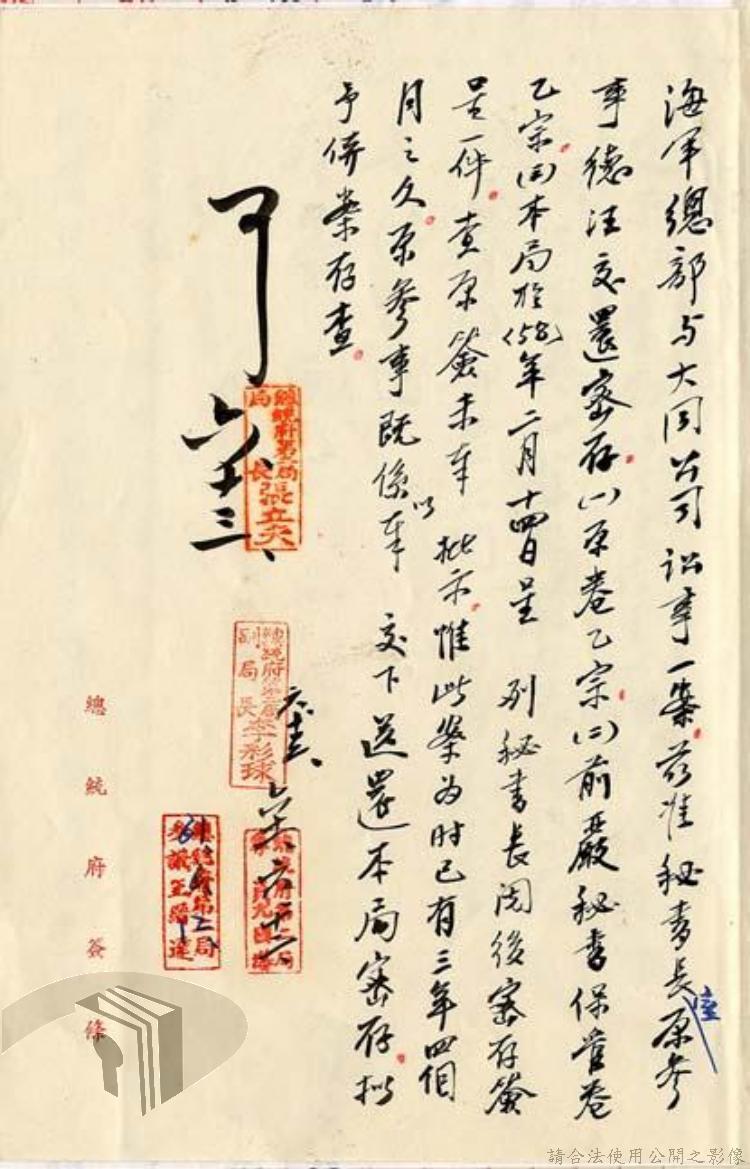 海軍總部与大同公司訟事一案。茲准秘書長室原參
事德汪交還密存。(一)原卷乙宗。(二)前嚴秘書保管卷
乙宗。(三)本局於(58)年二月十四日呈 列秘書長閱後密存簽
呈一件。查原簽未奉 批示。惟此案為時已有三年四個
月之久。原參事既係奉以 交下送還本局密存。擬
予併案存查。
可
六、十三、
總統府第二局
局長張立夫
總統府第二局
副局長李彩球
六、十三、
六、十二
總統府第二局
參議王
61
總統府簽條
請合法使用公開之影像